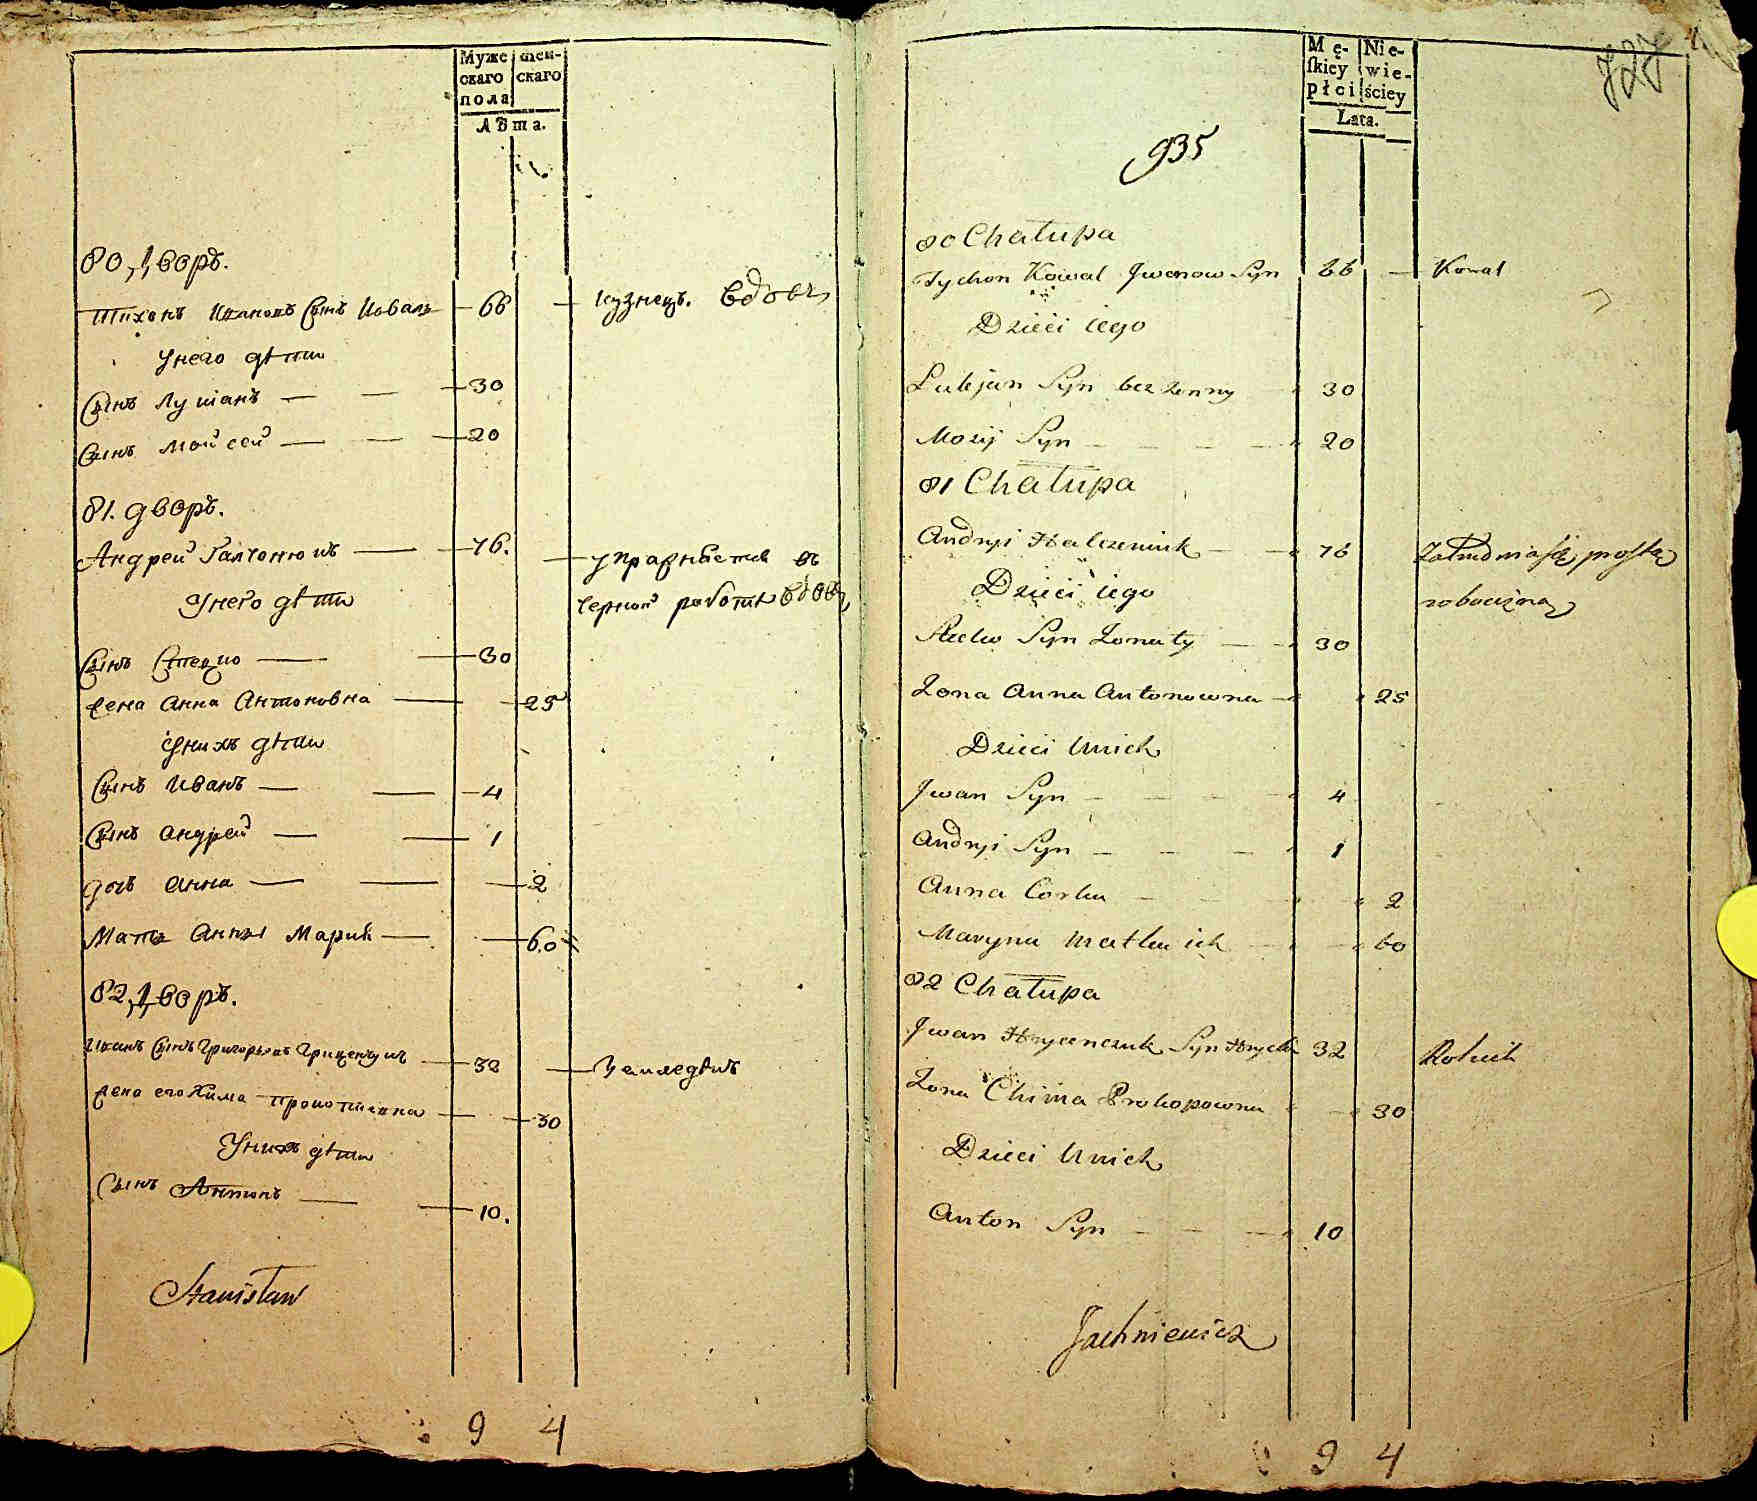 Муже
скаго
пола
жен-
скаго
Лѣта.
80. дворъ.
Тихонъ Ивановъ Сынъ Коваль — 66 — кузнецъ. вдовъ
Унего дѣти
Сынъ Лукіанъ — — 30
Сынъ Мойсей — — 20
81. дворъ.
Андрей Галченюкъ — 76. — упражняется въ
черной работѣ вдовъ
Унего дѣти
Сынъ Стецко — 30
жена Анна Антоновна — 25
Унихъ дѣти
Сынъ Иванъ — — 4
Сынъ Андрей — — 1
дочь Анна — — 2
Мать Анны Марина — 60
82. дворъ.
Иванъ Сынъ Григорьевъ Гриценчукъ — 32 — Земледѣлъ
жена его Хима Прокоповна — 30
Унихъ дѣти
Сынъ Антонъ — 10.
Stanisław
9 4
727
Mę-
skiey
płci
Nie-
wie-
ściey
Lata.
935
80 Chałupa
Tychon Kowal Jwanow Syn 66 — Kowal
Dzieci iego
Lukjan Syn bez żenny 30
Mosij Syn — — — 20
81 Chałupa
Andryi Halczeniuk — — 76 Zatrudnia się prostą
robocizną
Dzieci iego
Stecko Syn Żonaty — 30
Żona Anna Antonowna — 25
Dzieci Unich
Jwan Syn — — — 4
Andryi Syn — — — 1
Anna Corka — — 2
Maryna matka ich — — 60
82 Chałupa
Jwan Hrycenczuk Syn Hryćka 32 Rolnik
Żona Chima Prokopowna — 30
Dzieci Unich
Anton Syn — — — 10
Jachniewicz
9 4